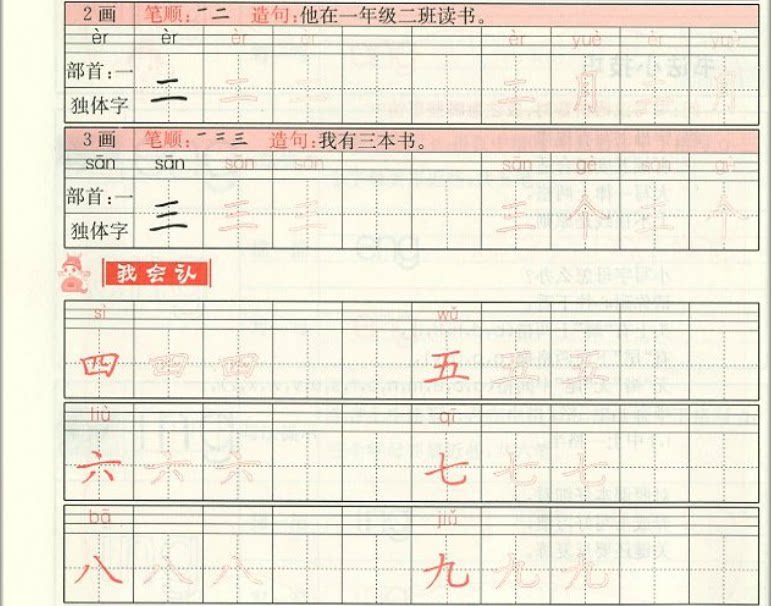 2 画 笔顺: 一 二 造句:他在一年级二班读书。
èr èr èr èr èr yuè èr yuè
部首:一
独体字 二 二 二 二 月 二 月
3 画 笔顺: 一 二 三 造句:我有三本书。
sān sān sān sān sān gè sān gè
部首:一
独体字 三 三 三 三 个 三 个
我会认
sì wǔ
四 四 四 五 五 五
liù qī
六 六 六 七 七 七
bā jiǔ
八 八 八 九 九 九